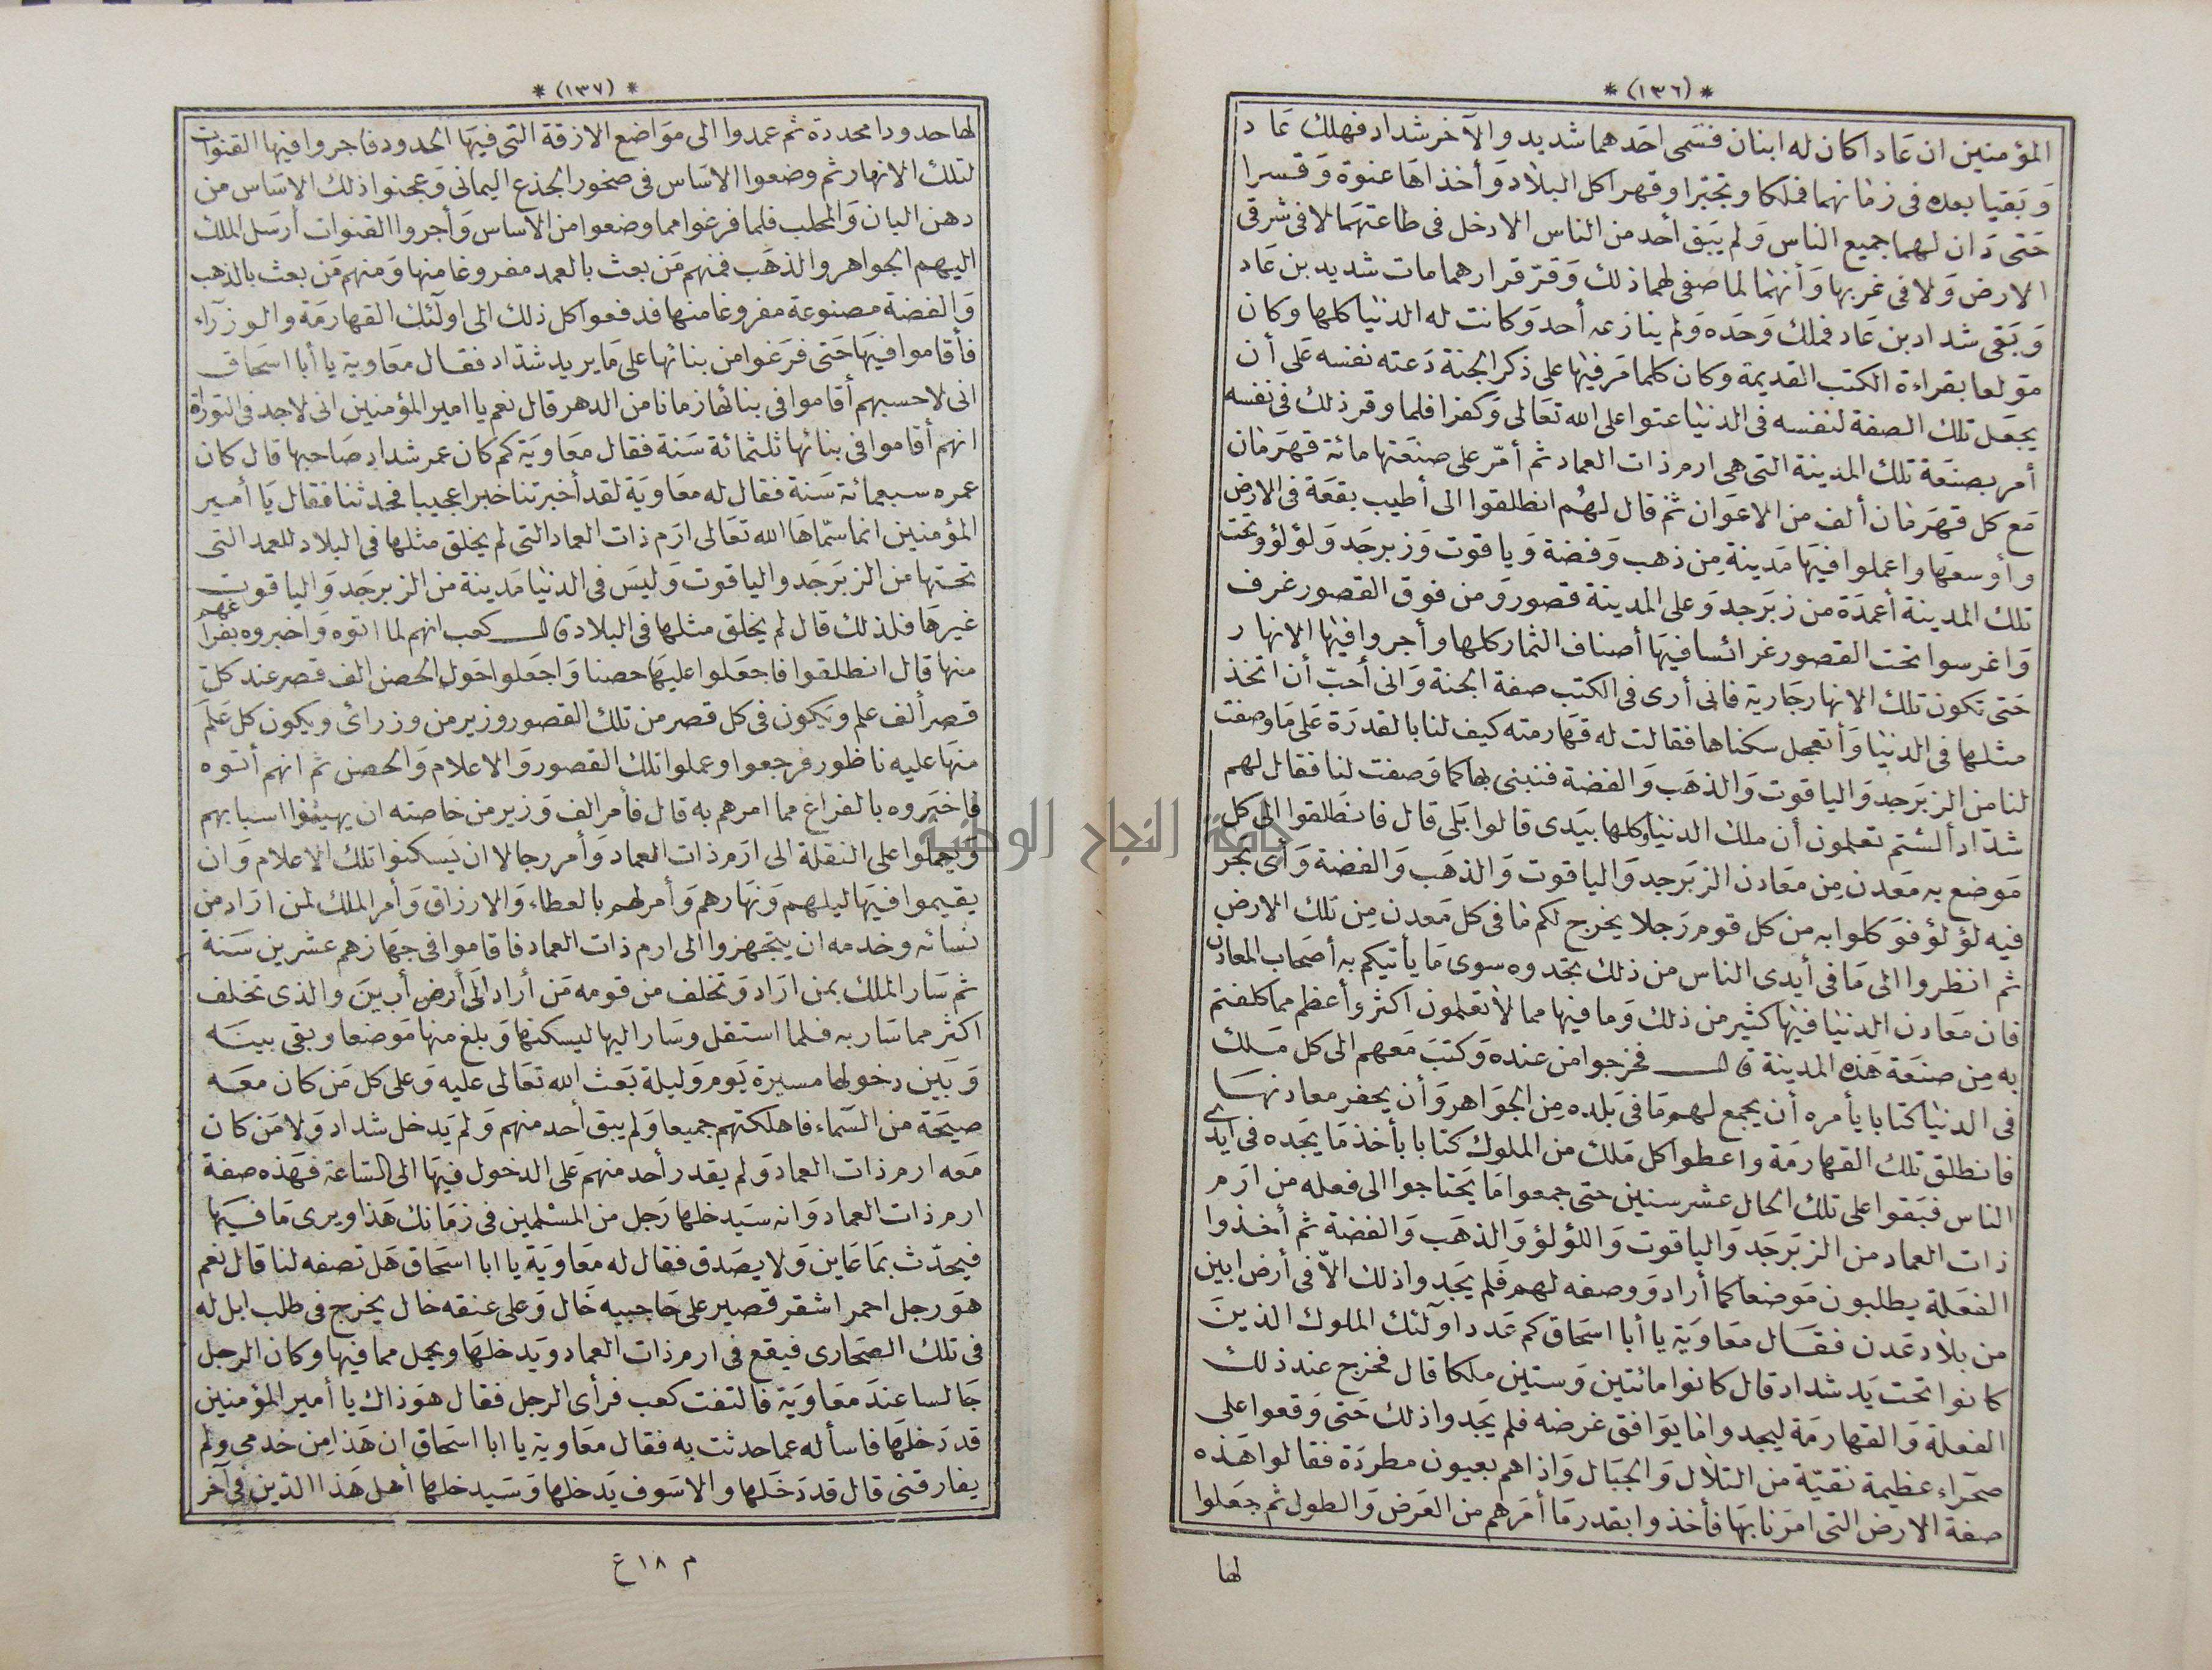 * (١٣٦) *
المؤمنين ان عَادا كان له ابنان فسَمى احَدهما شديد والآخر شداد فهلك عَاد
وَبَقيا بعده فى زمَانهما فملكا وتجبّرا وقهرا كل البلاد وَأخذاهَا عنوة وَقسرا
حَتى دَان لهما جميع الناس وَلم يَبَق أحد من الناس الا دخل فى طاعتهمَا لا فى شرقى
الارض وَلا فى غربها وَأنهما لما صفى لهما ذلك وَقرّ قرارهما مات شديد بن عَاد
وَبَقى شداد بن عَاد فملك وَحدَه وَلم ينازعه أحد وَكانت له الدنيا كلها وكان
مولعا بقراءة الكتب القديمة وكان كلما مَر فيها على ذكر الجنة دَعته نفسه عَلى أن
يجعَل تلك الصفة لنفسه فى الدنيا عتوا على الله تعَالى وَكفرا فلما وقر ذلك فى نفسه
أمر بصنعَة تلك المدينة التى هى ارم ذات العماد ثم أمّر على صنعَتها مائة قهرَمَان
مَع كل قهرَمَان ألف من الاعوَان ثم قال لهُم انطلقوا الى أطيب بقعَة فى الارض
وأوسعهَا واعملوا فيهَا مَدينة مِن ذهب وَفضة وَياقوت وَزبرجَد وَلؤلؤ وتحت
تلك المدينة أعمدَة من زبَرجد وَعلى المدينة قصور وَمن فوق القصور غرف
وَاغرسوا تحت القصور غرائسا فيهَا أصناف الثمار كلها وأجروا فيها الانهار
حَتى تكون تلك الانهار جَارية فانى أرى فى الكتب صفة الجنة وَانى أحبّ أن اتخذ
مثلها فى الدنيا وَأتعجل سكناها فقالت له قهَارمته كيف لنا بالقدرَة عَلى مَا وصفت
لنا من الزبَرجد وَالياقوت وَالذهَب وَالفضة فنبنى لها كما وَصفت لنا فقال لهم
شدّاد ألستم تعلمون أن ملك الدنيا وكلها بيَدى قالوا بَلى قال فانطَلقوا الى كل
مَوضع به مَعدن مِن معَادن الزبَرجد وَالياقوت وَالذهَب وَالفضة وَأى بحر
فيه لؤلؤ فوَكلوا به من كل قوم رَجلا يخرج لكم مَا فى كل مَعدن مِن تلك الارض
ثم انظروا الى مَا فى أيدى الناس من ذلك تجدوه سوى مَا يأتيكم به أصحَاب المعادن
فان مَعَادن الدنيا فيها كثير من ذلك وَما فيها مما لا تعلمون أكثر وأعظم مما كلفتم
به مِن صنعَة هَذه المدينة قال فخرجوا من عنده وَكتبَ مَعهم الى كل مَلك
فى الدنيا كتابا يأمره أن يجمع لهم مَا فى بَلده مِن الجوَاهر وَأن يحفر معادنها
فانطلق تلك القهارمَة واعطوا كل مَلك من الملوك كتابا بأخذ مَا يَجَده فى أيدى
الناس فبَقوا على تلك الحال عشر سنين حتى جمعوا مَا يَحتاجوا الى فعله من ارَم
ذات العماد من الزبَرجَد وَالياقوت وَاللؤلؤ وَالذهَب وَالفضة ثم أخذوا
الفعَلة يطلبون مَوضعا كما أراد وَوصفه لهم فَلم يَجَدوا ذلك الاّ فى أرض ابين
من بلاد عَدن فقال معَاويَة يا أبا اسحَاق كم عَدد اولئك الملوك الذينَ
كانوا تحت يَد شداد قال كانوا مائتين وَستين ملكا قال فخرج عند ذلك
الفعلة وَالقهارمَة ليجدوا مَا يوَافق غرضه فلم يَجَدوا ذلك حَتى وَقعوا على
صحَراء عظيمة نقيّة من التلال وَالجبَال وَاذا هم بعيون مطردَة فقالوا هَذه
صفة الارض التى امَرنا بهَا فأخذوا بقدر مَا أمَرهم من العَرض وَالطول ثم جعَلوا
لها
* (١٣٧) *
لها حدودا محددة ثم عمدوا الى موَاضع الازقة التى فيهَا الحدود فاجروا فيها القنوات
لتلك الانهار ثم وضعوا الاسَاس فى صخور الجذع اليمانى وَعجنوا ذلك الاسَاس من
دهن البان وَالمحلب فلما فرغوا مما وضعوا من الاساس وَأجروا القنوات أرسَل الملك
اليهم الجواهر والذهَب فمنهم مَن بعث بالعمد مفروغا منها وَمنهم مَن بعث بالذهب
وَالفضة مصنوعة مفروغا منها فدفعوا كل ذلك الى اولئك القهارمَة والوزرَاء
فأقاموا فيهَا حَتى فرَغوا من بنائها على مَا يريد شدّاد فقال معَاوية يا أبا اسحَاق
انى لاحسبهم أقاموا فى بنائها زمانا من الدهر قال نعم يا امير المؤمنين انى لاجد فى التوراة
انهم أقاموا فى بنائها ثلثمائة سَنة فقال معَاويَة كم كان عمر شداد صَاحبها قال كان
عمره سبعمائة سَنة فقال له معَاويَة لقد أخبرتنا خبرا عجيبا فحدثنا فقال يَا أمير
المؤمنين انما سمّاهَا الله تعَالى ارَم ذات العماد التى لم يخلق مثلها فى البلاد للعمد التى
تحتها من الزبَرجَد والياقوت وَليسَ فى الدنيا مَدينة من الزبرجَد وَالياقوت
غيرهَا فلذلك قال لم يخلق مثلها فى البلاد قال كعب انهم لما اتوه وَاخبروه بفراغهم
منها قال انطلقوا فاجعَلوا عليهَا حصنا وَاجعَلوا حَول الحصن الف قصر عند كل
قصر ألف علم وَيكون فى كل قصر من تلك القصور وزير من وزرائى ويكون كل عَلم
منهَا عليه ناظور فرجعوا وعملوا تلك القصور وَالاعلام وَالحصن ثم انهم أتوه
فاخبَروه بالفراغ مما امرهم به قال فأمر الف وَزير من خاصته ان يهيئوا اسبابهم
وَيعملوا على النقلة الى ارَم ذات العماد وَأمر رجالا ان يَسكنوا تلك الاعلام وَان
يقيموا فيهَا ليلهم وَنهَارهم وَأمر لهم بالعطاء وَالارزاق وَأمر الملك لمن ارَاد من
نسائه وخدمه ان يتجهزوا الى ارم ذات العماد فاقاموا فى جهَازهم عشرين سَنة
ثم سَار الملك بمن ارَاد وَتخلف من قومه مَن أراد الَى أرض أبينَ والذى تخلف
اكثر مما سَار به فلما استقل وسَار اليها ليسكنهَا وَبلغ منها مَوضعا وبقى بينَه
وَبَين دخولها مسيرة يَوم وَليلة بَعث الله تعَالى عليه وَعلى كل مَن كان معَه
صيَحَة من السّماء فاهلكتهم جميعا وَلم يبق أحد منهم وَلم يَدخل شداد وَلا مَن كان
مَعه ارم ذات العماد وَلم يقدر أحد منهم عَلى الدخول فيهَا الى الساعة فهَذه صفة
ارم ذات العماد وَانه سَيدخلها رَجل من المسْلمين فى زمَانك هَذا ويرى مَا فيهَا
فيحدّث بمَا عَاين وَلا يصَدق فقال له معَاويَة يا ابا اسحَاق هَل تصفه لنا قال نعم
هوَ رجل احمر اشقر قصير على حَاجبيه خَال وَعلى عنقه خال يخرج فى طلب ابل له
فى تلك الصحَارى فيقع فى ارم ذات العماد وَيَدخلهَا ويحمل مما فيها وكان الرجل
جَالسا عندَ معَاويَة فالتفت كعب فرأى الرجل فقال هوَ ذاك يا أمير المؤمنين
قد دَخلهَا فاسأله عما حدثت به فقال معَاوية يا ابا اسحَاق ان هَذا مِن خدمى ولم
يفارقنى قال قد دَخَلها والا سَوف يَدخلها وَسَيدخلها أهل هَذا الدّين فى آخر
م ١٨ ع
جامعة النجاح الوطنية